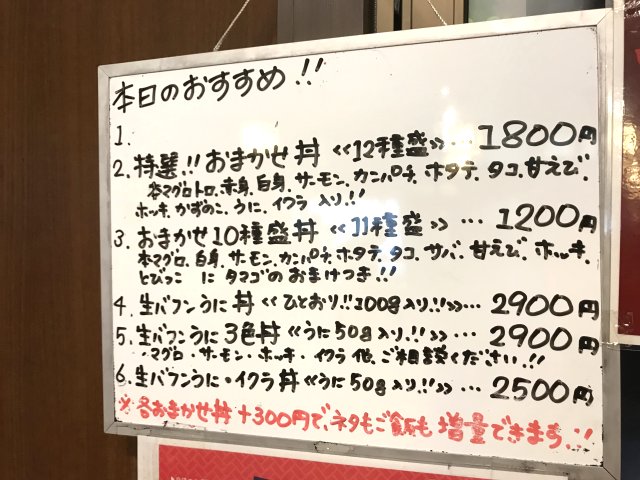 本日のおすすめ!!
1.
2. 特選!! おまかせ丼 《12種盛》… 1800円
本マグロトロ、赤身、白身、サーモン、カンパチ、ホタテ、タコ、甘えび、
ホッキ、かずのこ、うに、イクラ入り!!
3. おまかせ10種盛丼 《11種盛》… 1200円
本マグロ、白身、サーモン、カンパチ、ホタテ、タコ、サバ、甘えび、ホッキ、
とびっこ に タマゴのおまけつき!!
4. 生バフンうに丼 《ひとおり!!100g入り!!》… 2900円
5. 生バフンうに3色丼 《うに50g入り!!》… 2900円
・マグロ・サーモン・ホッキ・イクラ他、ご相談ください!!
6. 生バフンうに・イクラ丼 《うに50g入り!!》… 2500円
※各おまかせ丼 +300円で、ネタもご飯も増量できます!!